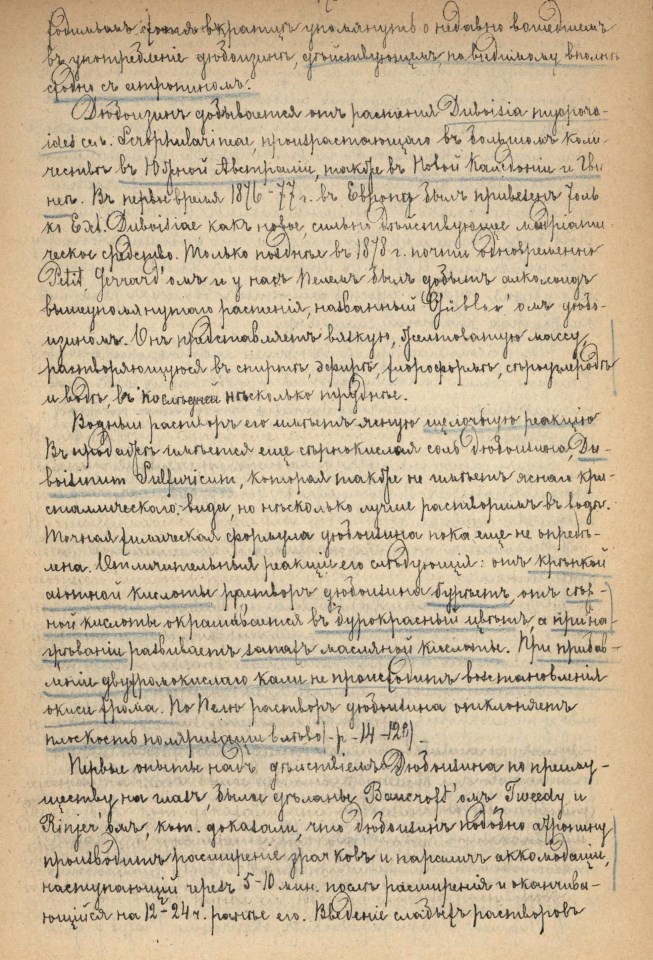 ходимымъ вкратцѣ упомянуть о недавно вошедшемъ
въ употребленіе дюбоизинѣ, дѣйствующемъ, по видимому, вполнѣ
сходно съ атропиномъ.
Дюбоизинъ добывается отъ растенія Duboisia myoporo-
ides сем. Scrophularineae, произрастающаго въ большомъ коли-
чествѣ въ Южной Австраліи, также въ Новой Каледоніи и Гви-
неѣ. Въ первый время 1876-77 г. въ Европу былъ привезенъ толь-
ко Ext. Duboisiae какъ новое, сильно дѣйствующее мидріати-
ческое средство. Только позднѣе въ 1878 г. почти одновременно
Petit, Gerrard'омъ и у насъ Пелемъ былъ добытъ алкалоидъ
вышеупомянутаго растенія, названный Gübler'омъ дюбо-
изиномъ. Онъ представляетъ вязкую, желтоватую массу,
растворяющуюся въ спиртѣ, эфирѣ, хлороформѣ, сѣроуглеродѣ
и водѣ, въ послѣдней нѣсколько труднѣе.
Водный растворъ его имѣетъ ясную щелочную реакцію
Въ продажѣ имѣется еще сѣрнокислая соль дюбоизина, Du-
boisinum Sulfuricum, которая также не имѣетъ яснаго кри-
сталлическаго вида, но нѣсколько лучше растворима въ водѣ.
Точная химическая формула дюбоизина пока еще не опредѣ-
лена. Отличительныя реакціи его слѣдующія: отъ крѣпкой
азотной кислоты растворъ дюбоизина бурѣетъ, отъ сѣр-
ной кислоты окрашивается въ бурокрасный цвѣтъ а при на-
грѣваніи развиваетъ запахъ масляной кислоты. При прибав-
леніи двухромокислаго кали не происходитъ возстановленія
окиси хрома. По Пелю растворъ дюбоизина отклоняетъ
плоскость поляризаціи влѣво
Первые опыты надъ дѣйствіемъ Дюбоизина по преиму-
ществу на глазъ, были сдѣланы Bancroft'омъ Tweedy и
Rinjer омъ, кот. доказали, что дюбоизинъ подобно атропину
производитъ расширеніе зрачковъ и параличъ аккомодаціи,
наступающій черезъ 5-10 мин. послѣ расширенія и оканчива-
ющійся на 12-24 ч. ранѣе его. Введеніе слабыхъ растворовъ